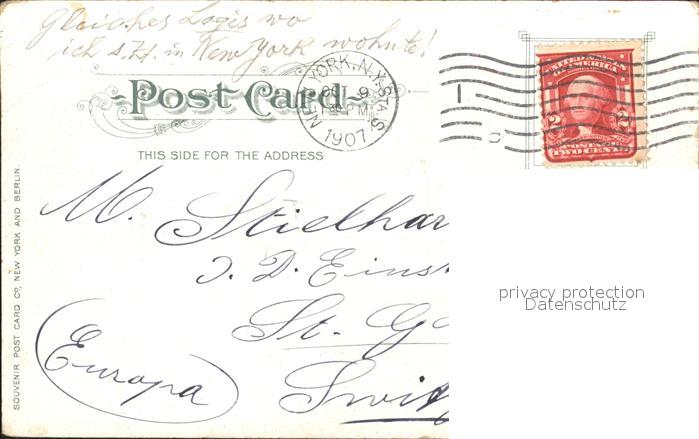 Gleiches Logis wo
ich s. Zt. in New York wohnte!
Post Card.
THIS SIDE FOR THE ADDRESS
NEW YORK, N.Y. STA. S
OCT 9
PM
1907
UNITED STATES
OF AMERICA
2 2
POSTAGE
TWO CENTS
SOUVENIR POST CARD CO., NEW YORK AND BERLIN.
M. Stielhar
J. D. Eins
St. Ga
(Europa) Swit
privacy protection
Datenschutz